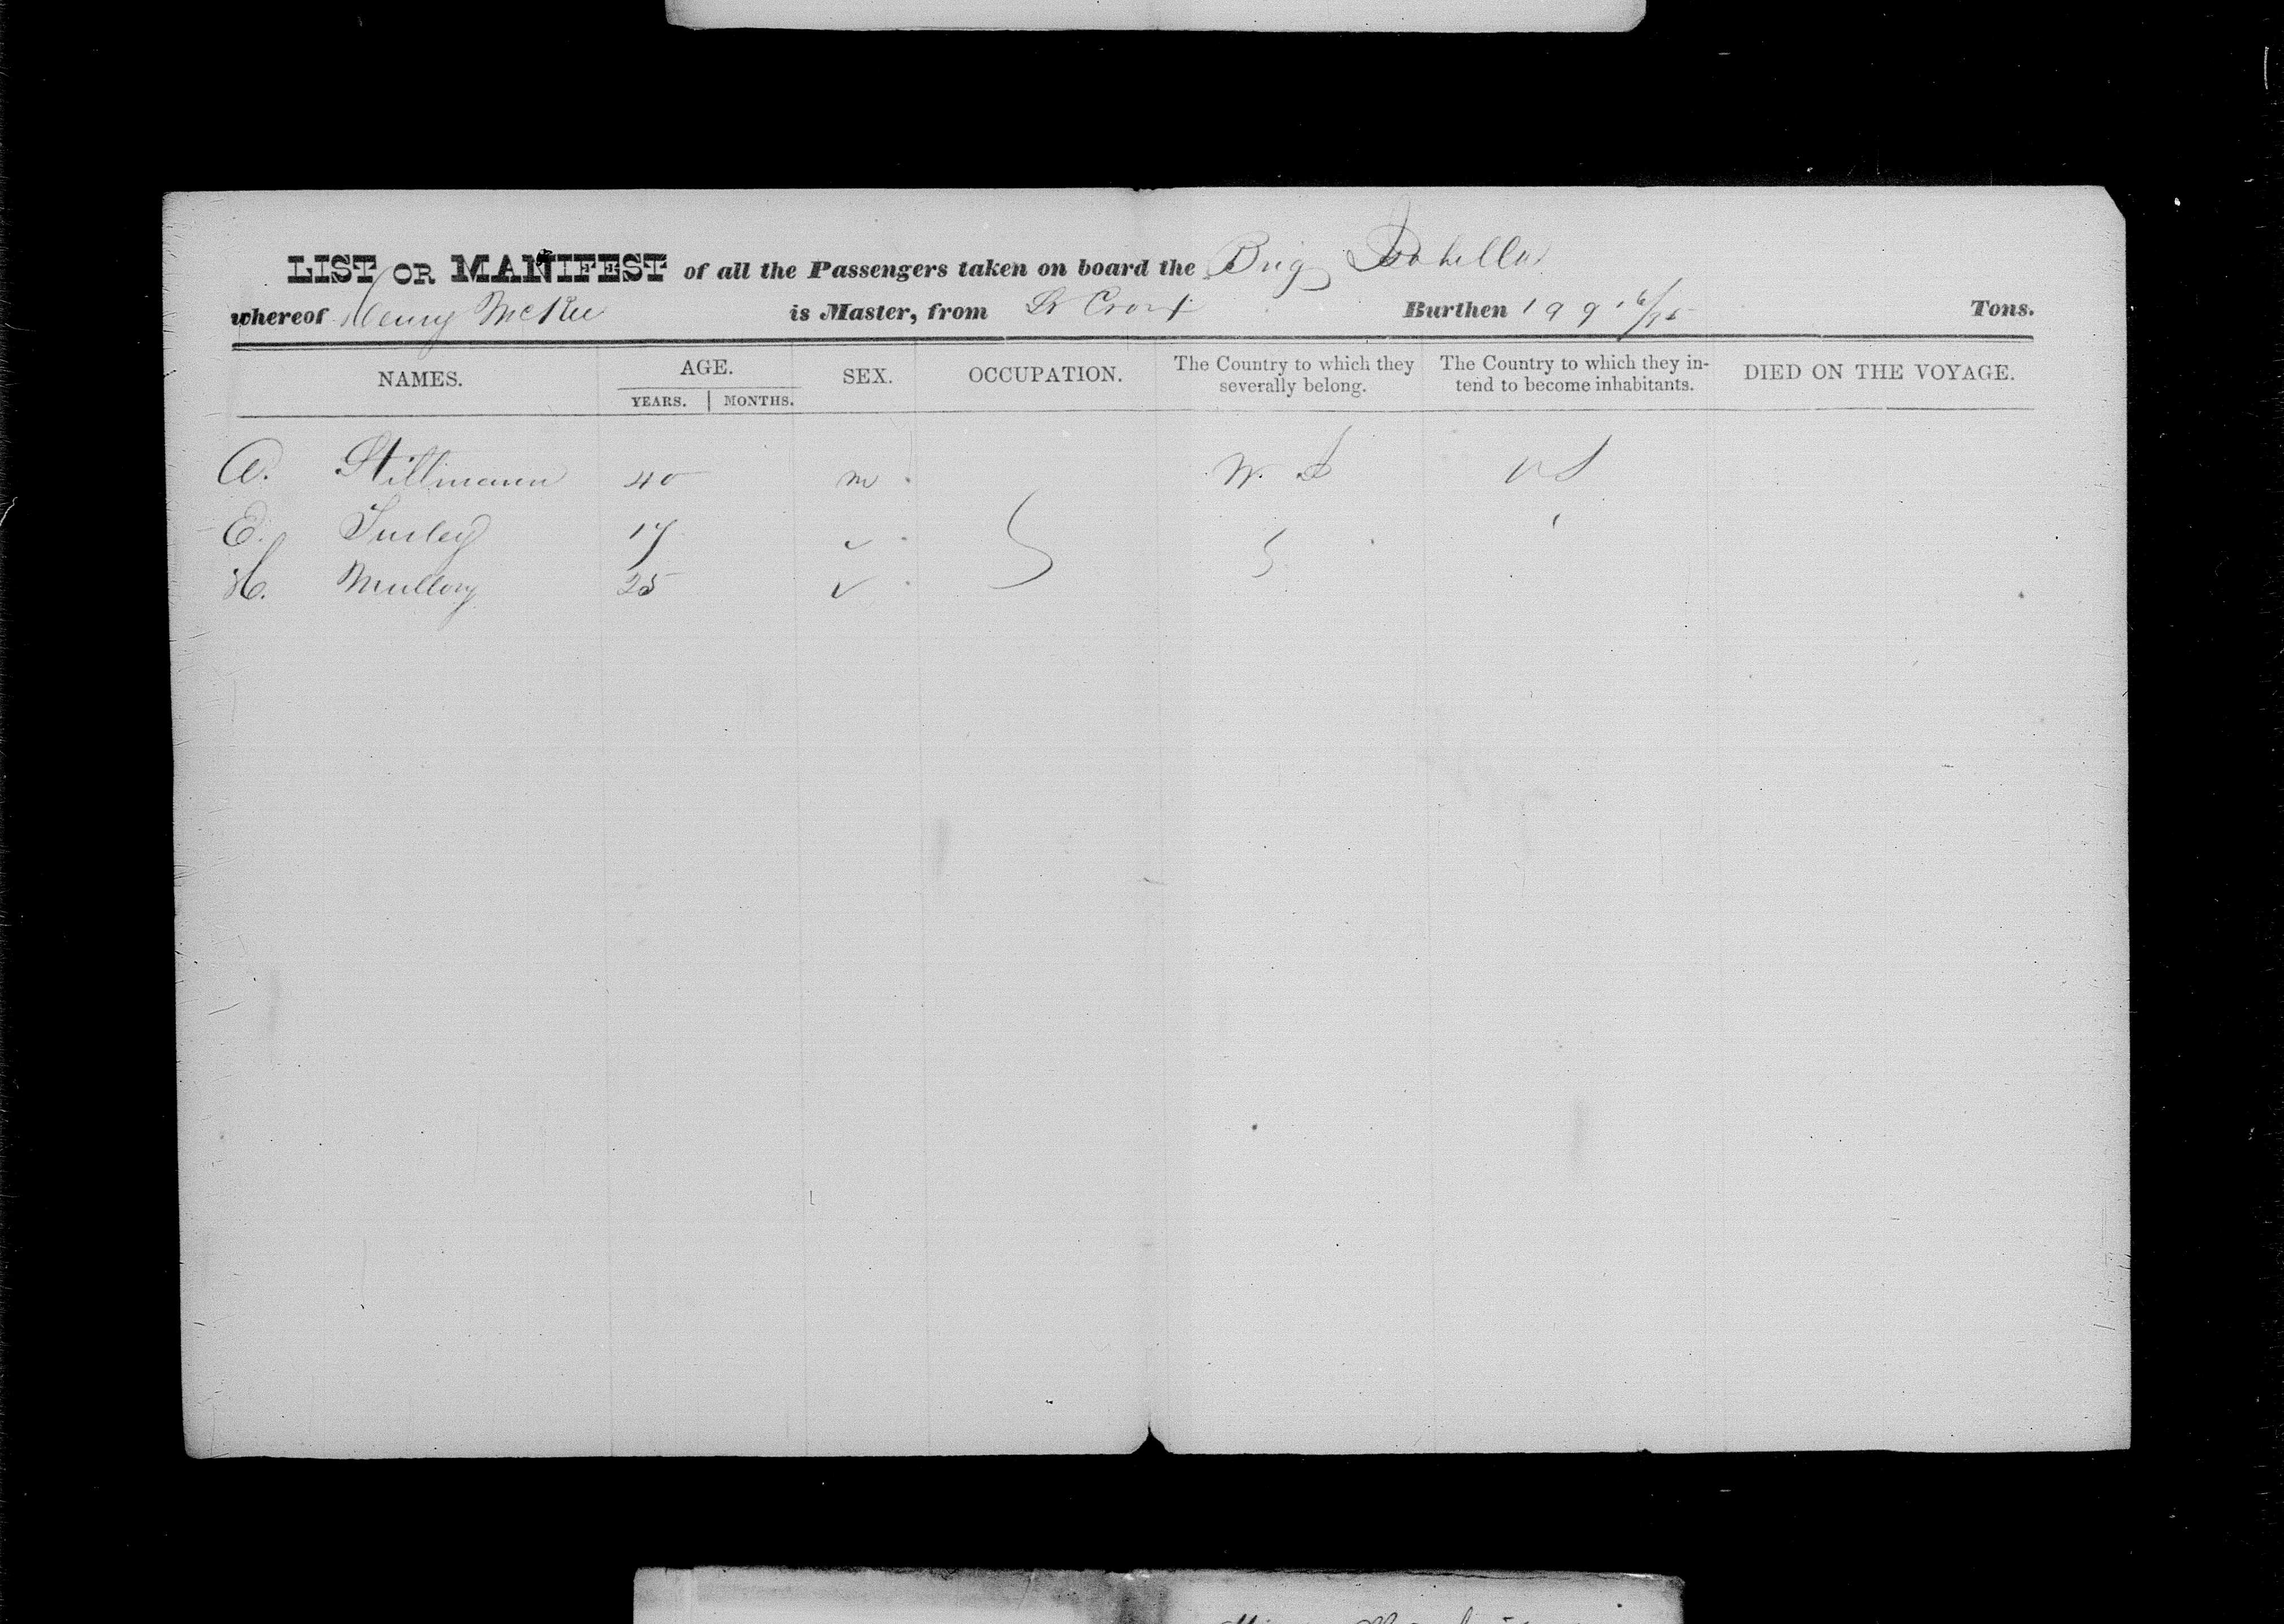 LIST OR MANIFEST of all the Passengers taken on board the Brig Isabella
whereof Henry McKee is Master, from St Croix Burthen 199 16/95 Tons.
NAMES. AGE. SEX. OCCUPATION. The Country to which they severally belong. The Country to which they intend to become inhabitants. DIED ON THE VOYAGE.
YEARS. MONTHS.
A. Stillmann 40 m W. I US
E. 17
H. 25